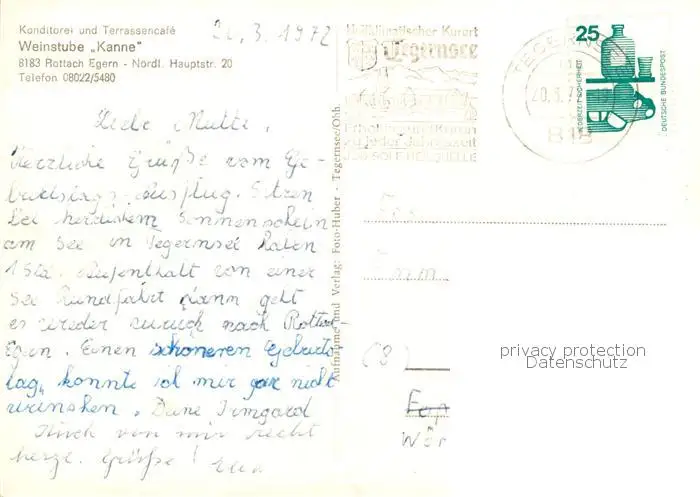 Konditorei und Terrassencafé
Weinstube „Kanne"
8183 Rottach Egern - Nördl. Hauptstr. 20
Telefon 08022/5480
21.3.1972
Liebe Mutti,
Herzliche Grüße vom Ge-
burtstags-Ausflug. Sitzen
bei herrlichem Sonnenschein
am See in Tegernsee haben
1 Std. Aufenthalt von einer
See Rundfahrt dann geht
es wieder zurück nach Rottach-
Egern. Einen schöneren Geburts
tag, konnte ich mir gar nicht
wünschen. Deine Irmgard
Auch von mir recht
herzl. Grüße!
Aufnahme und Verlag: Foto-Huber - Tegernsee/Obb.
Heilklimatischer Kurort
Tegernsee
Erholung und Kuren
zu jeder Jahreszeit
JOD SOLE HEILQUELLE
TEGERNSEE
20.3.72
818
25
JEDERZEIT SICHERHEIT
DEUTSCHE BUNDESPOST
Fam
(8)
privacy protection
Datenschutz
Wör